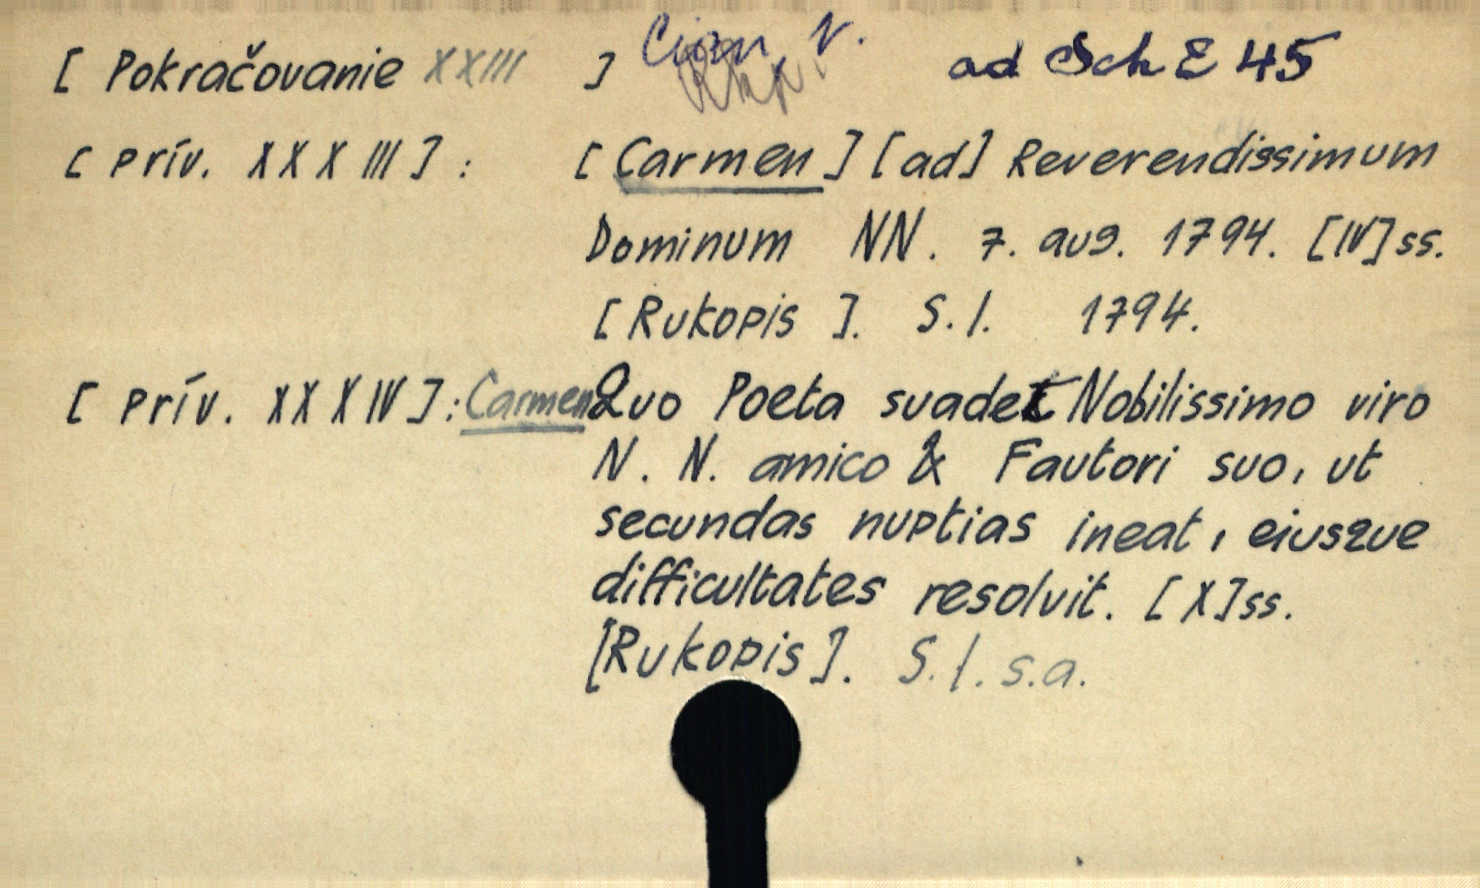 [ Pokračovanie XXIII ] ad Sch E 45
[ prív. XXXIII ] : [ Carmen ] [ad] Reverendissimum
Dominum NN. 7. aug. 1794. [IV] ss.
[ Rukopis ]. S.l. 1794.
[ prív. XXXIV ] : Carmen Quo Poeta suadet Nobilissimo viro
N. N. amico & Fautori suo, ut
secundas nuptias ineat, eiusque
difficultates resolvit. [ X ] ss.
[Rukopis]. S.l. s.a.